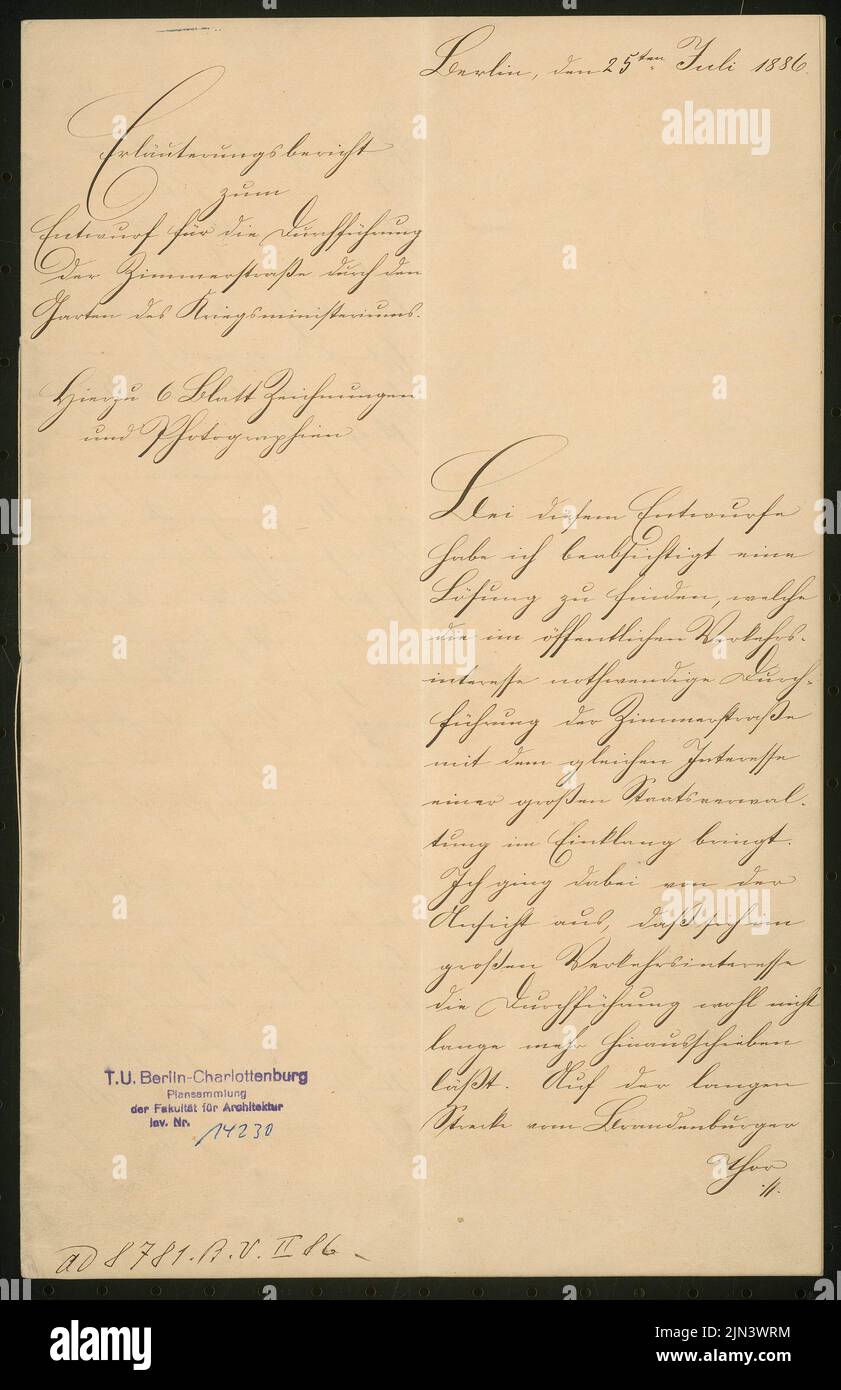 Berlin, den 25ten Juli 1886.
Erläuterungsbericht
zum
Entwurf für die Durchführung
der Zimmerstraße durch den
Garten des Kriegsministeriums.
Hierzu 6 Blatt Zeichnungen
und Photographien
Bei diesem Entwurfe
habe ich beabsichtigt eine
Lösung zu finden, welche
die im öffentlichen Verkehrs-
interesse nothwendige Durch-
führung der Zimmerstraße
mit dem gleichen Interesse
einer großen Staatsverwal-
tung im Einklang bringt.
Ich ging dabei von der
Ansicht aus, daß sich im
großen Verkehrsinteresse
die Durchführung wohl nicht
lange mehr hinausschieben
läßt. Auf der langen
Strecke vom Brandenburger
Thor
T.U. Berlin-Charlottenburg
Plansammlung
der Fakultät für Architektur
Inv. Nr. 14230
ad 8781. B.V. II 86
alamy
alamy
alamy
alamy
Image ID: 2JN3WRM
www.alamy.com